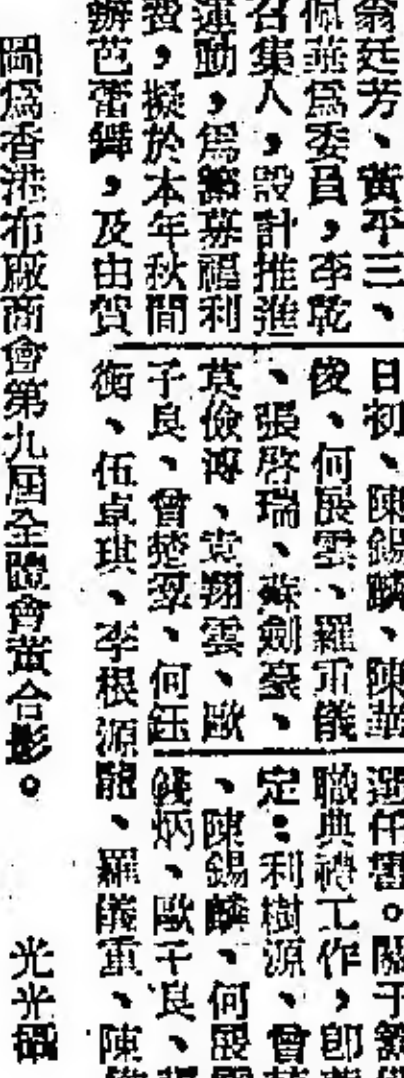 翁廷芳、黃平三、
佩莊爲委員，李乾
召集人，設計推進
運動，爲籌募福利
費，擬於本年秋間
辦芭蕾舞，及由賀
日初、陳錫麟、陳華
俊、何展雲、羅重儀
、張啓瑞、蘇劍豪、
莫儉溥、袁翔雲、歐
子良、曾楚、何鈺
衡、伍卓琪、李根源
選任書。關于籌
職典禮工作，卽
定：利樹源、曾
、陳錫麟、何展
炳、歐于良、
龍、羅儀重、陳
圖爲香港布廠商會第九屆全體會董合影。
光光攝